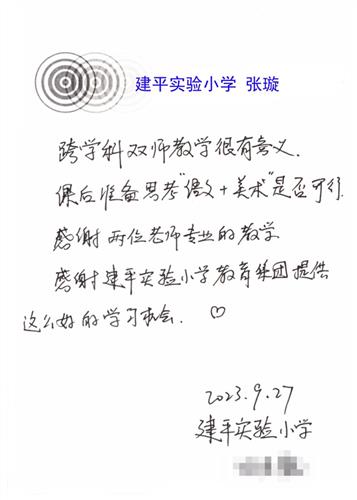 建平实验小学 张璇
跨学科双师教学很有意义.
课后准备思考“语文+美术”是否可行
感谢两位老师专业的教学
感谢建平实验小学教育集团提供
这么好的学习机会. ♡
2023.9.27
建平实验小学